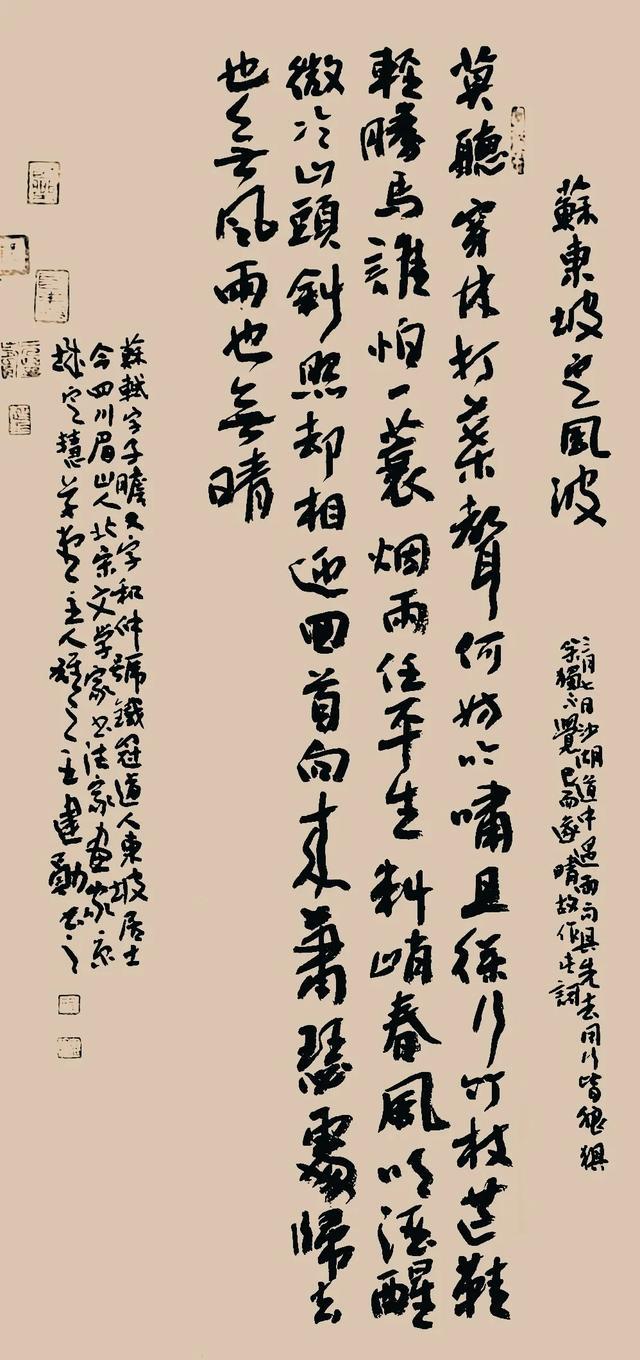 蘇東坡定風波
三月七日沙湖道中遇雨雨具先去同行皆狼狽
余獨不覺已而遂晴故作此詞
莫聽穿林打葉聲何妨吟嘯且徐行竹杖芒鞋
輕勝馬誰怕一蓑烟雨任平生料峭春風吹酒醒
微冷山頭斜照却相迎回首向來蕭瑟處歸去
也無風雨也無晴
蘇軾字子瞻又字和仲號鐵冠道人東坡居士
今四川眉山人北宋文学家書法家畫家京
城定慧草堂主人王建勳書之